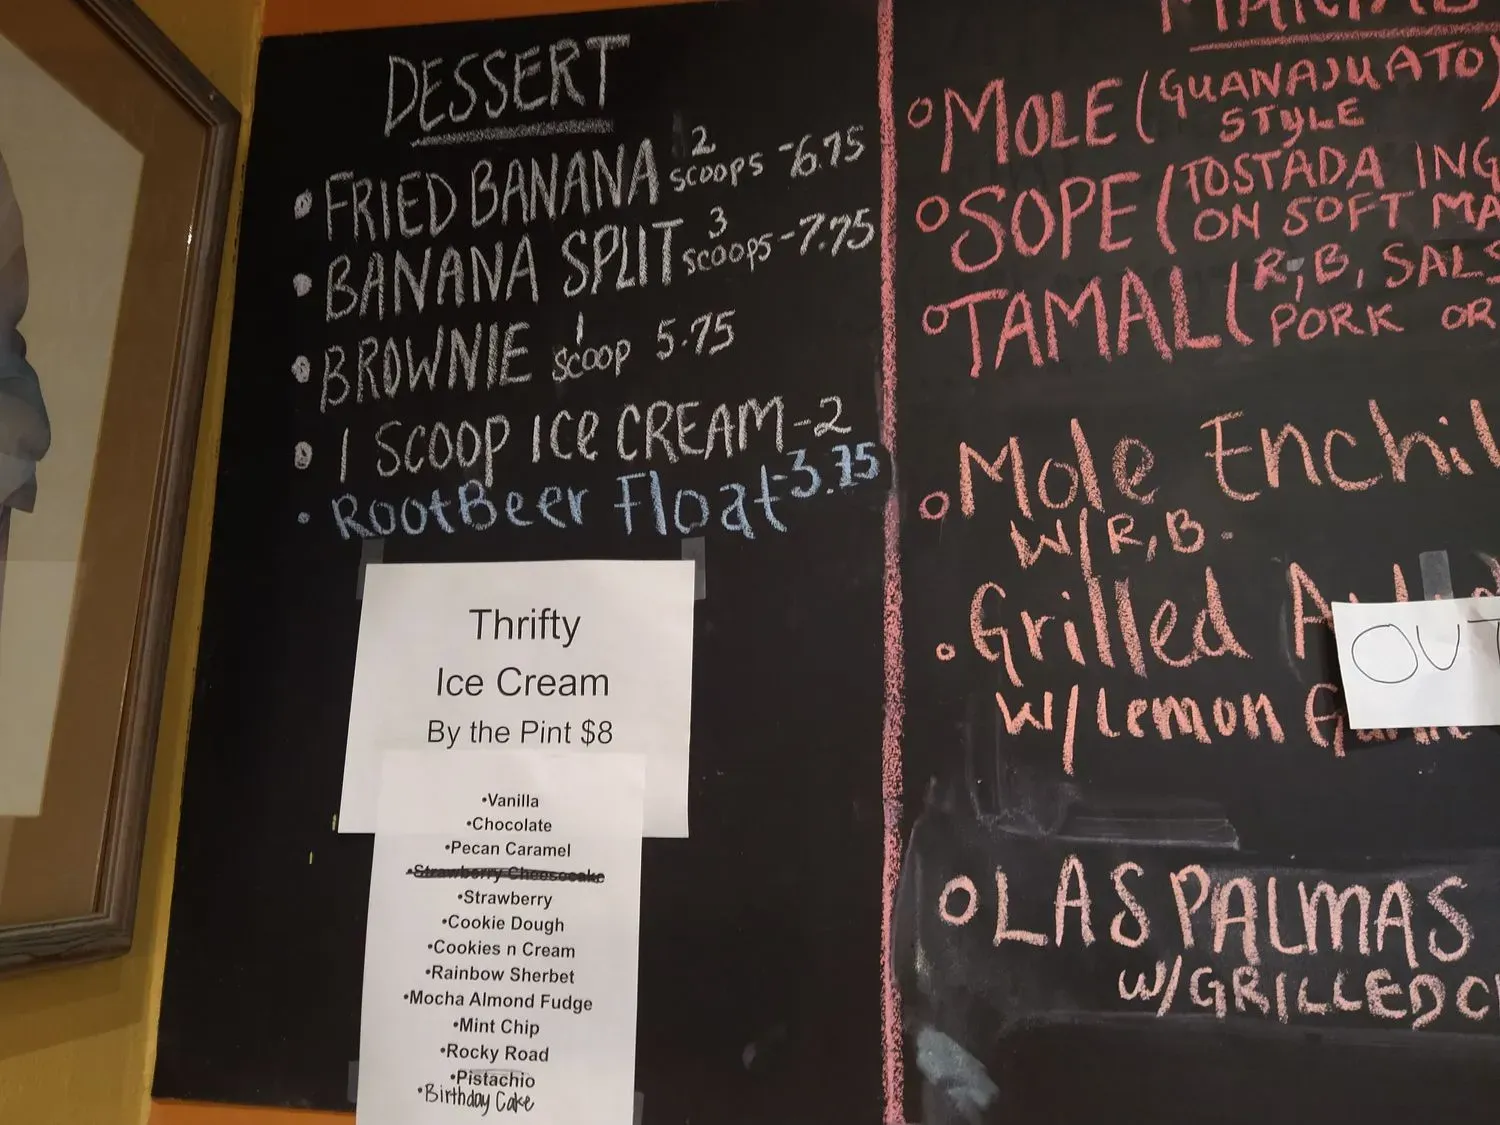 DESSERT
• FRIED BANANA 2 SCOOPS - 6.75
• BANANA SPLIT 3 SCOOPS - 7.75
• BROWNIE 1 SCOOP 5.75
• 1 SCOOP ICE CREAM - 2
• RootBeer Float - 3.75
Thrifty
Ice Cream
By the Pint $8
•Vanilla
•Chocolate
•Pecan Caramel
•Strawberry Cheesecake
•Strawberry
•Cookie Dough
•Cookies n Cream
•Rainbow Sherbet
•Mocha Almond Fudge
•Mint Chip
•Rocky Road
•Pistachio
•Birthday Cake
○ MOLE (GUANAJUATO)
STYLE
○ SOPE (TOSTADA ING
ON SOFT MA
○ TAMAL (R, B, SALS
PORK OR
○ Mole Enchil
W/R, B.
○ Grilled
OUT
W/Lemon
○ LAS PALMAS
W/GRILLED C